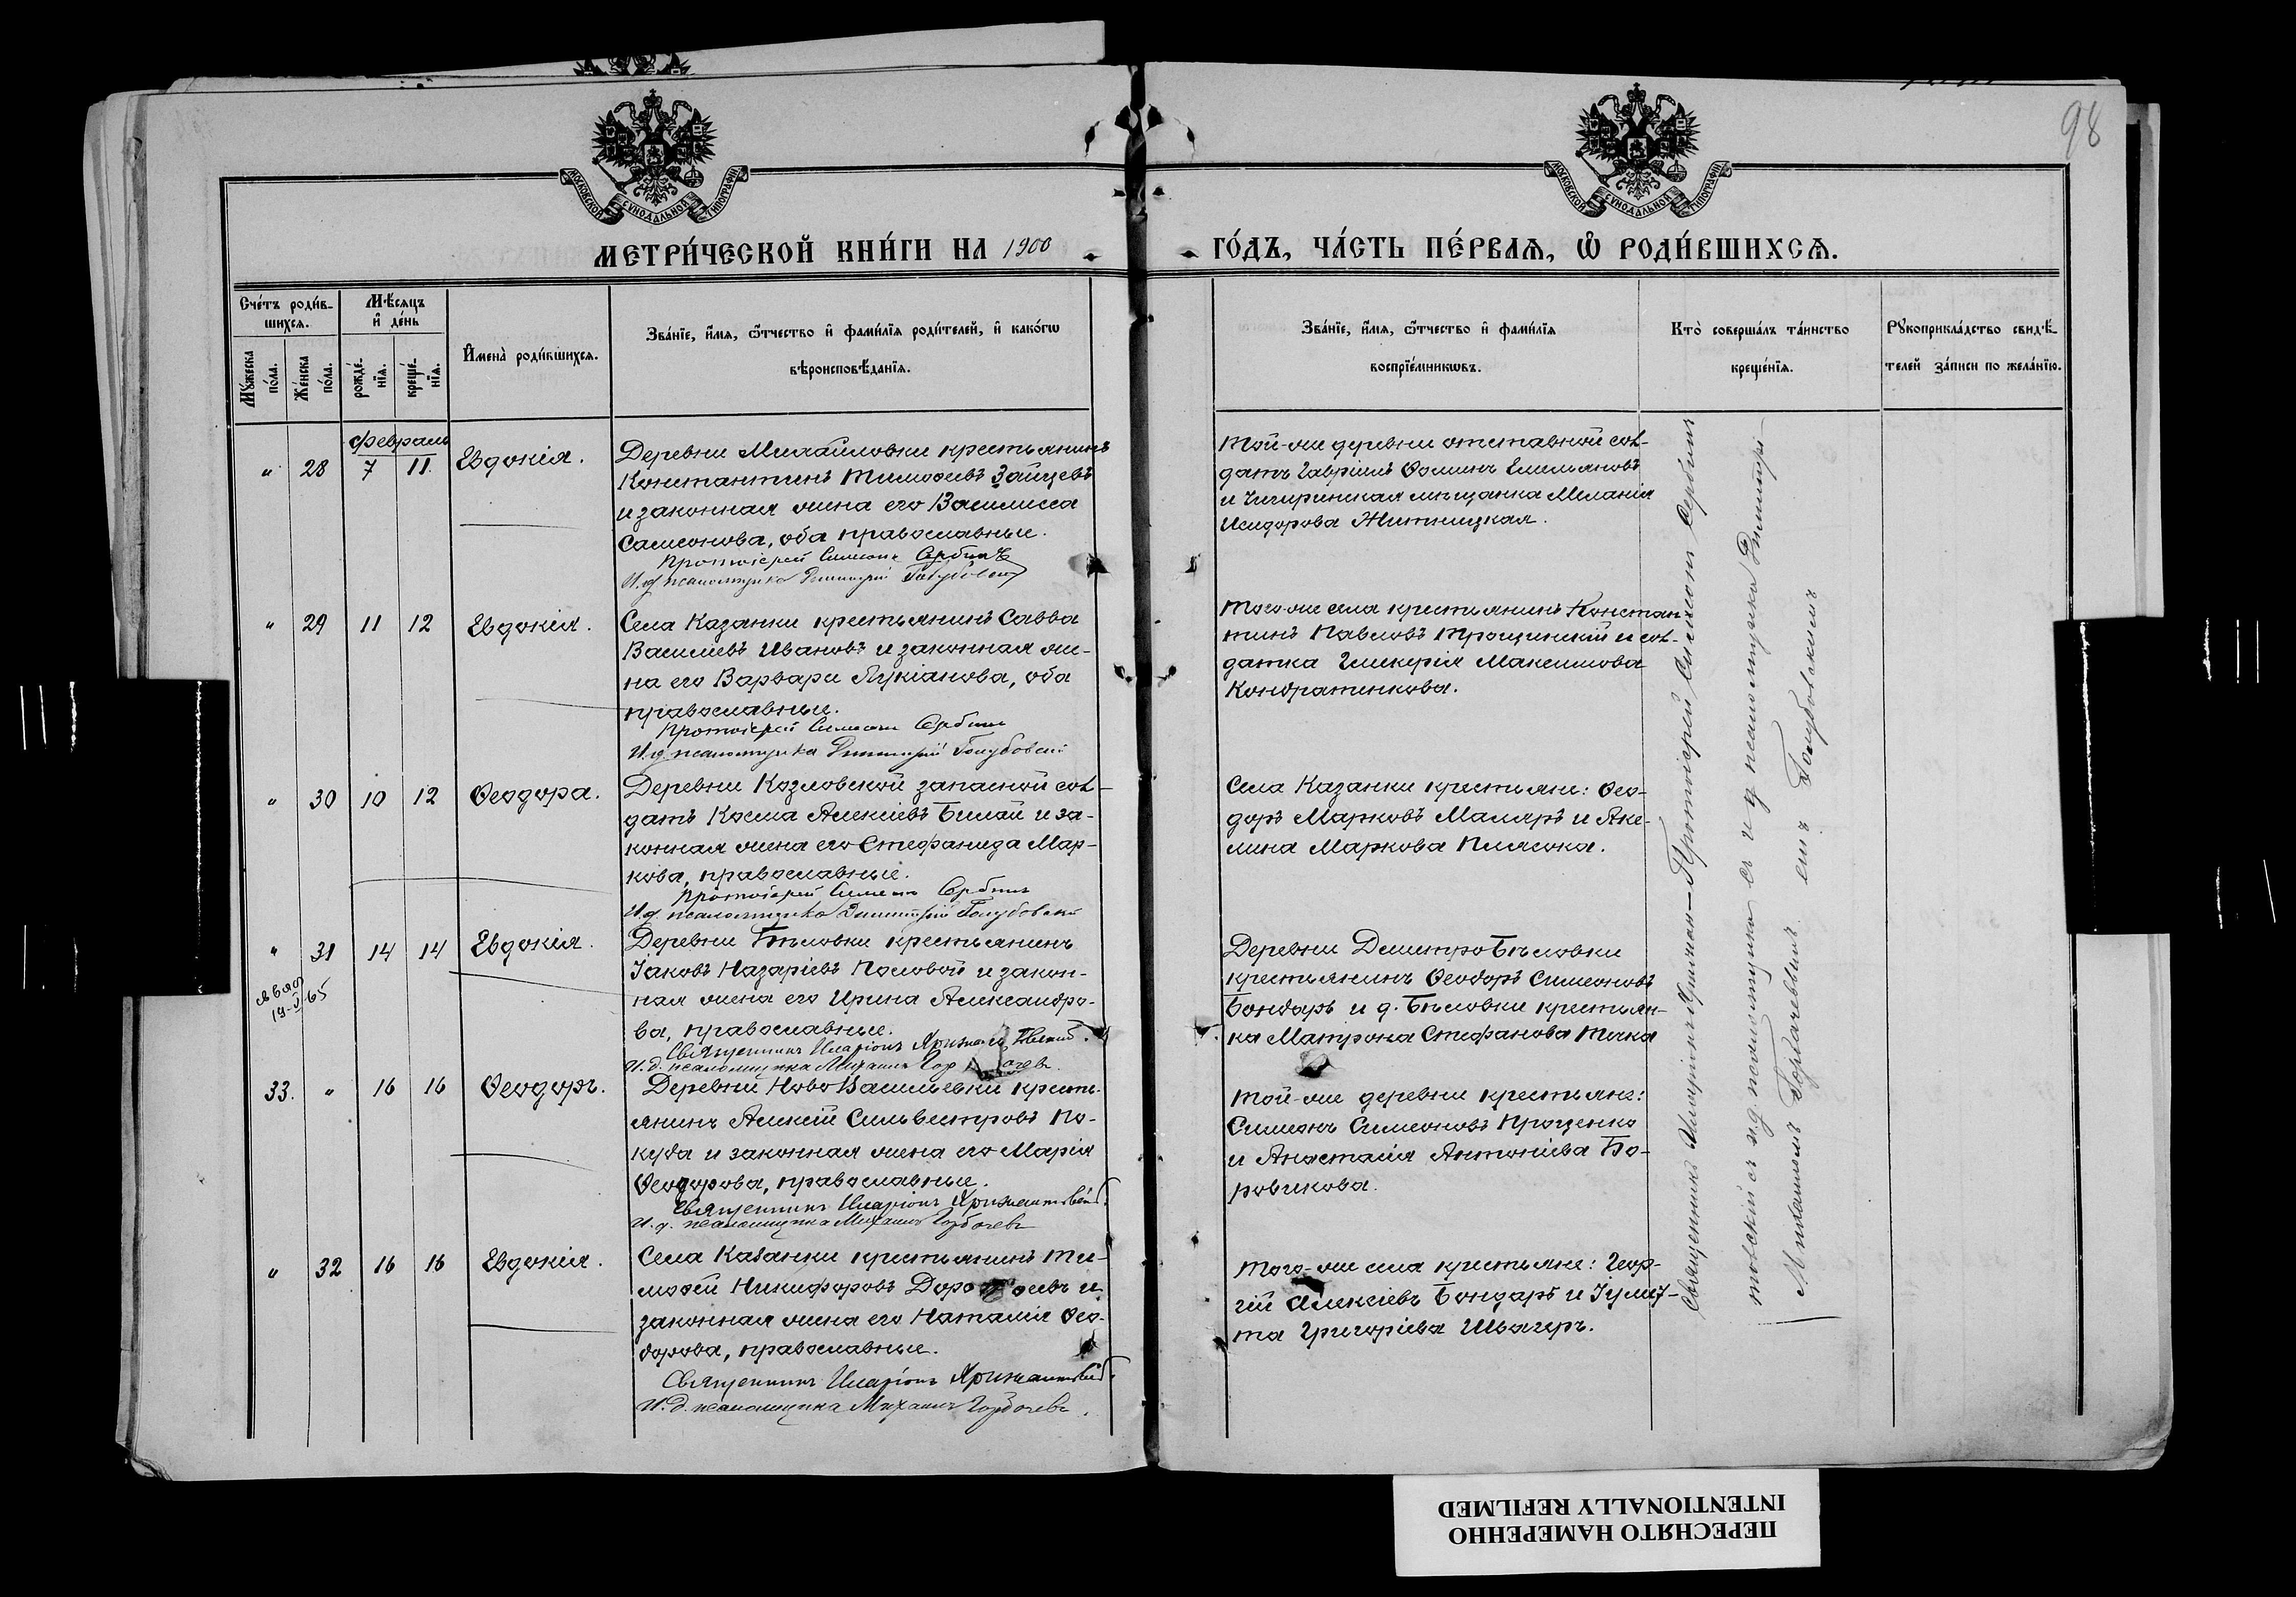 98
МОСКОВСКОЙ СѴНОДАЛЬНОЙ ТИПОГРАФІИ
МОСКОВСКОЙ СѴНОДАЛЬНОЙ ТИПОГРАФІИ
МЕТРИ́ЧЕСКОЙ КНИ́ГИ НА 1900
ГО́ДЪ, ЧА́СТЬ ПЕ́РВАѦ, Ѡ҆ РОДИ́ВШИХСѦ.
Сче́тъ роди́в-
шихсѧ.
Мꙋ́жеска по́ла.
Же́нска по́ла.
Мѣ́сѧцъ
и҆ де́нь
рожде́-
нїѧ.
креще́-
нїѧ.
И҆мена̀ роди́вшихсѧ.
Зва́нїе, и҆́мѧ, ѻ҆́тчество и҆ фами́лїѧ роди́телей, и҆ како́гѡ
вѣроисповѣ́данїѧ.
Зва́нїе, и҆́мѧ, ѻ҆́тчество и҆ фами́лїѧ
воспрїе́мникѡвъ.
Кто̀ соверша́лъ та́инство
креще́нїѧ.
Рꙋкоприкла́дство свидѣ́-
телей за́писи по жела́нїю.
Февраль
" 28 7 11. Евдокія.
Деревни Михайловки крестьянинъ
Константинъ Тимоѳеевъ Зайцевъ
и законная жена его Василисса
Самсонова, оба православные.
Протоіерей Симеонъ Сербинъ
И.д. псаломщика Димитрій Голубовскій
Той-же деревни отставной сол-
датъ Гавріилъ Ѳоминъ Емельяновъ
и Чигиринская мѣщанка Меланія
Исидорова Житницкая.
" 29 11 12 Евдокія.
Села Казанки крестьянинъ Савва
Василіевъ Ивановъ и законная же-
на его Варвара Лукіанова, оба
православные.
Протоіерей Симеонъ Сербинъ
И.д. псаломщика Димитрій Голубовскій
Того-же села крестьянинъ Констан-
тинъ Павловъ Трощинскій и сол-
датка Гликерія Максимова
Кондратенкова.
" 30 10 12 Ѳеодора.
Деревни Козловской запасной сол-
датъ Косма Алексіевъ Билай и за-
конная жена его Стефанида Мар-
кова, православные.
Протоіерей Симеонъ Сербинъ
И.д. псаломщика Димитрій Голубовскій
Села Казанки крестьяне: Ѳео-
доръ Марковъ Маляръ и Аке-
лина Маркова Плясока.
" 31 14 14 Евдокія.
19-V-65
Деревни Бѣловки крестьянинъ
Іаковъ Назаріевъ Половой и закон-
ная жена его Ирина Александро-
ва, православные.
Священникъ Иларіонъ
И.д. псаломщика Михаилъ
Деревни Демитро Бѣловки
крестьянинъ Ѳеодоръ Симеоновъ
Бондарь и д. Бѣловки крестьян-
ка Матрона Стефанова Точка
33. " 16 16 Ѳеодоръ.
Деревни Ново Васильевки кресть-
янинъ Алексій Сильвестровъ По-
куда и законная жена его Марія
Ѳеодорова, православные.
Священникъ Иларіонъ
И.д. псаломщика Михаилъ
Той-же деревни крестьяне:
Симеонъ Симеоновъ Проценко
и Анастасія Антоніева Бо-
ровикова.
" 32 16 16 Евдокія.
Села Казанки крестьянинъ Ти-
моѳей Никифоровъ Дороѳеевъ и
законная жена его Наталія Ѳео-
дорова, православные.
Священникъ Иларіонъ
И.д. псаломщика Михаилъ
Того-же села крестьяне: Геор-
гій Алексіевъ Бондарь и Іулит-
та Григоріева Швагеръ.
Священникъ Иларіонъ Протоіерей Симеонъ Сербинъ
съ и.д. псаломщика съ и д псаломщика Димитрі-
Михаиломъ емъ Голубовскимъ
ПЕРЕСНЯТО НАМЕРЕННО
INTENTIONALLY REFILMED